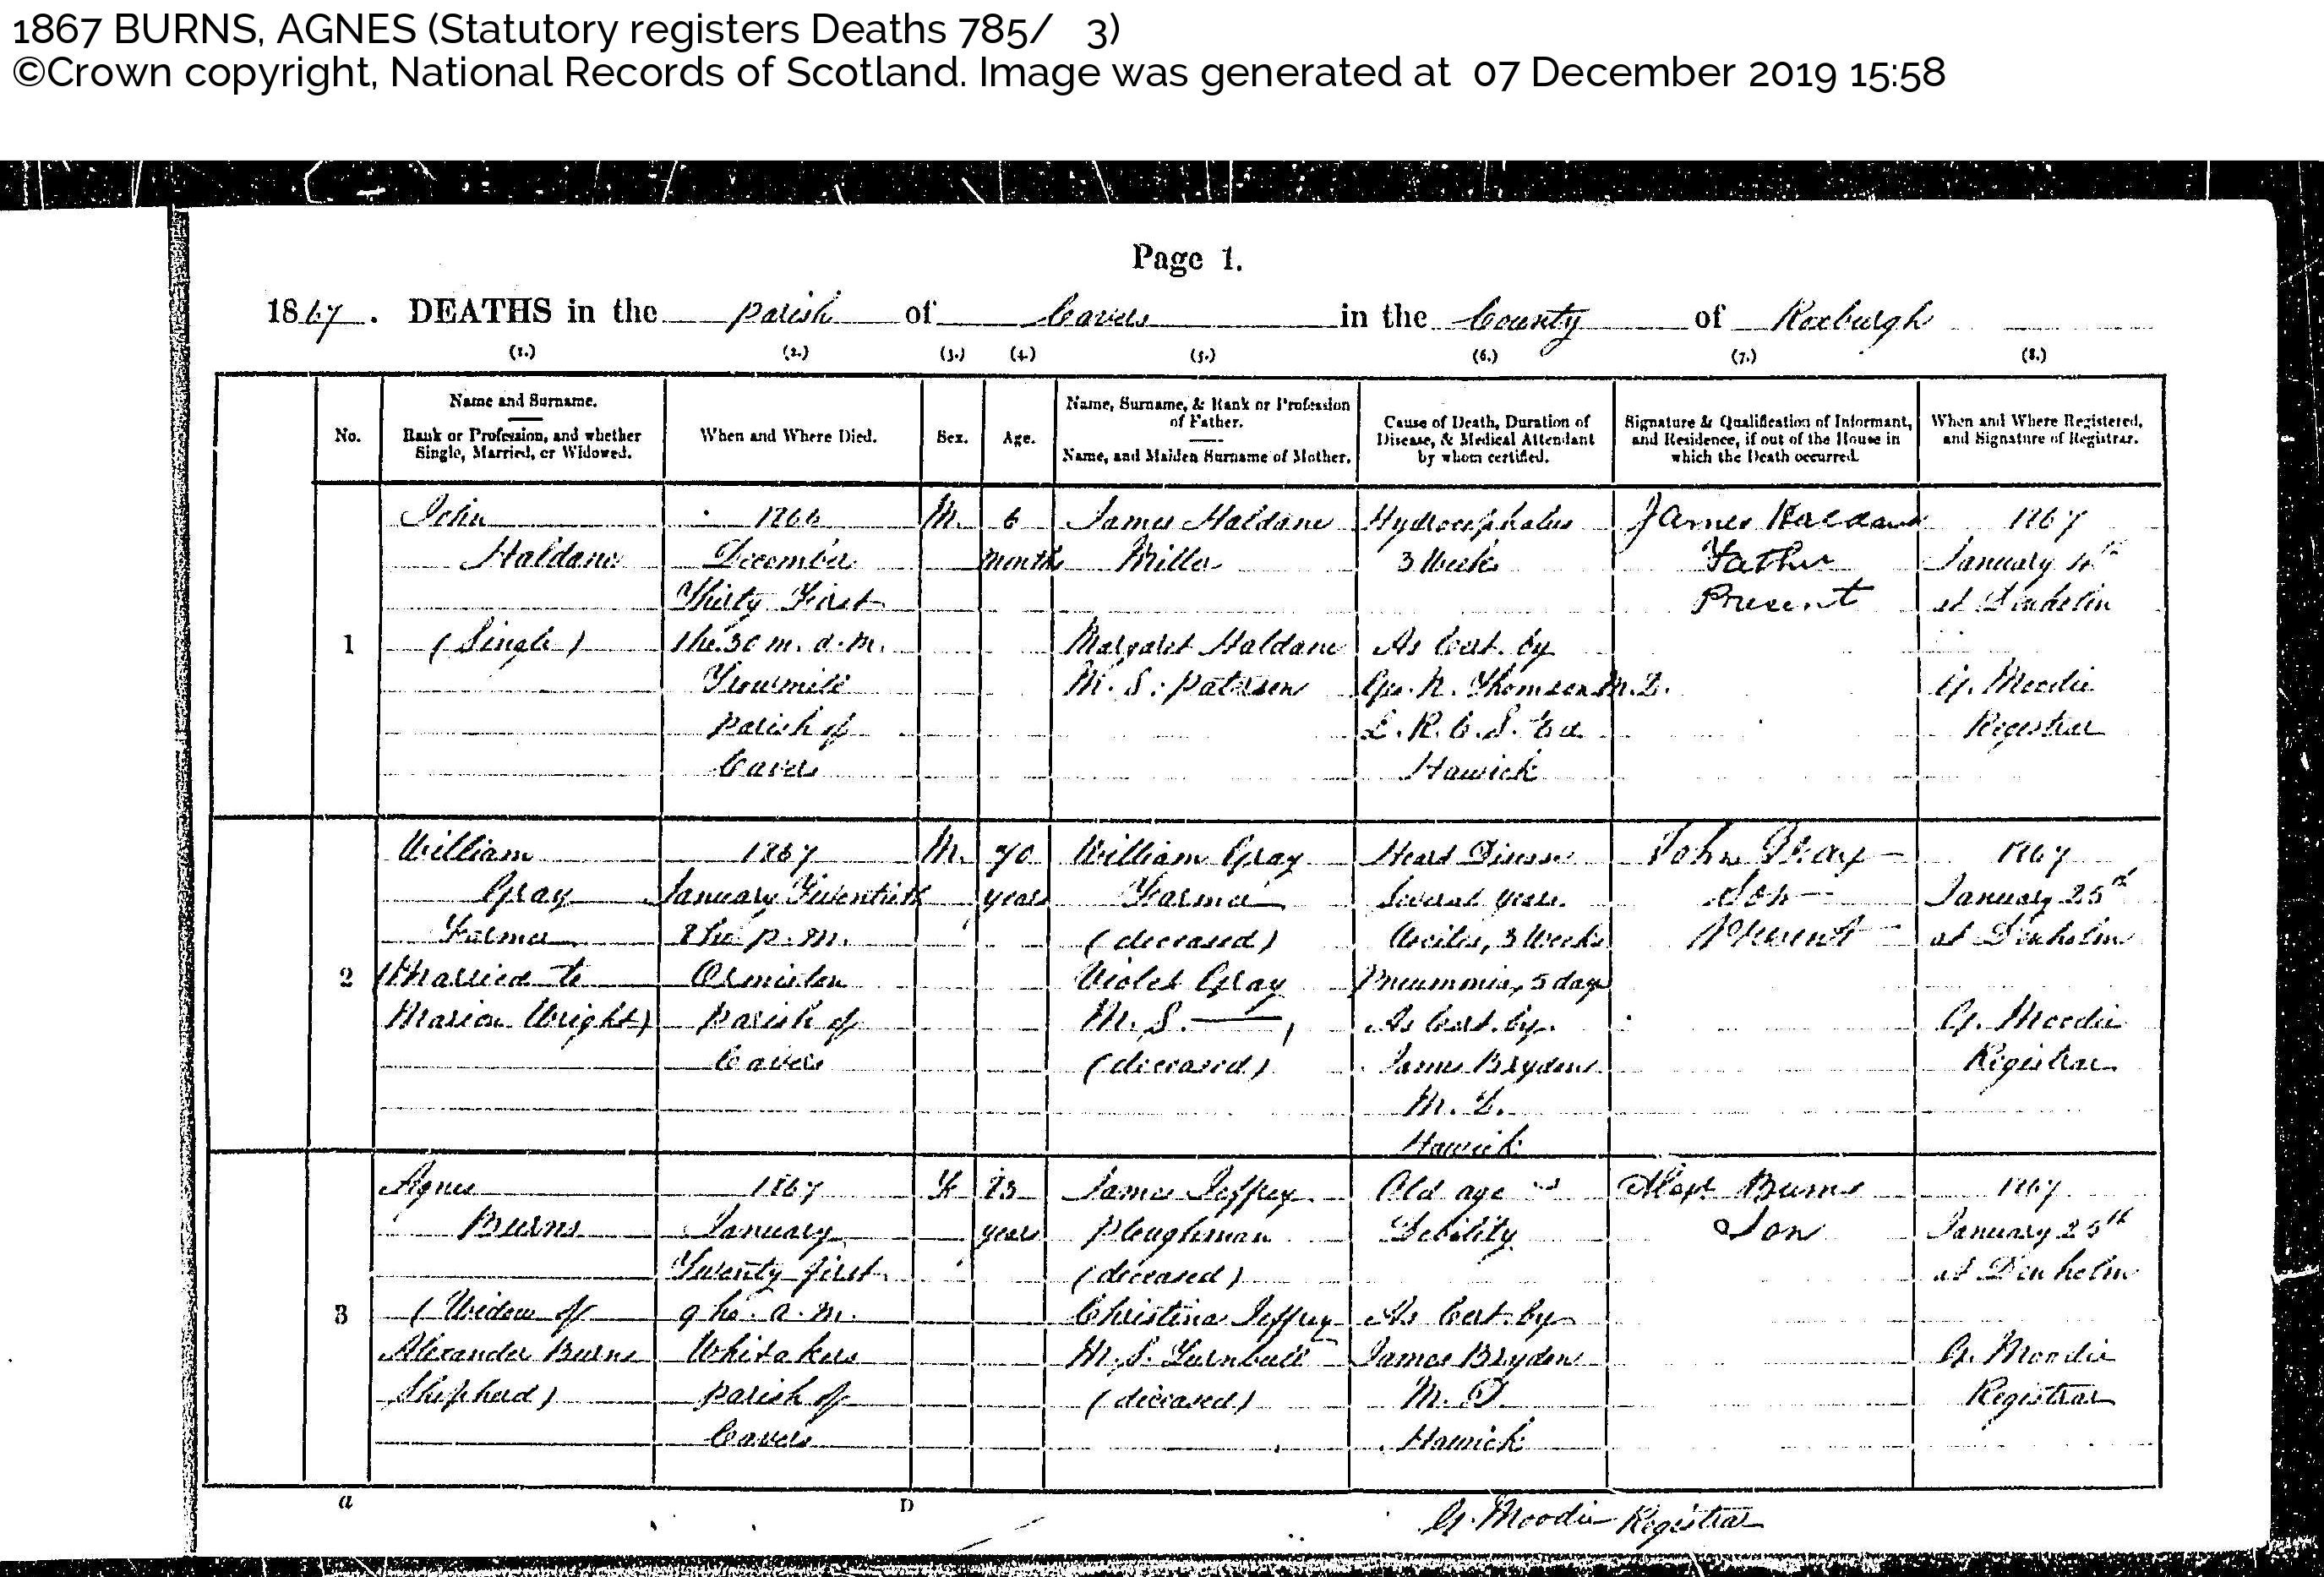 1867 BURNS, AGNES (Statutory registers Deaths 785/ 3)
©Crown copyright, National Records of Scotland. Image was generated at 07 December 2019 15:58
Page 1.
1867. DEATHS in the parish of Cavers in the County of Roxburgh
(1.) (2.) (3.) (4.) (5.) (6.) (7.) (8.)
No.
Name and Surname.
Rank or Profession, and whether
Single, Married, or Widowed.
When and Where Died.
Sex.
Age.
Name, Surname, & Rank or Profession
of Father.
Name, and Maiden Surname of Mother.
Cause of Death, Duration of
Disease, & Medical Attendant
by whom certified.
Signature & Qualification of Informant,
and Residence, if out of the House in
which the Death occurred.
When and Where Registered,
and Signature of Registrar.
1
John
Haldane
(Single)
1866
December
Thirty First
1 ho. 30 m. a.m.
Trowmill
parish of
Cavers
M.
6
months
James Haldane
Miller
Margaret Haldane
M. S. Paterson
Hydrocephalus
3 Weeks
As Cert. by
Geo. N. Thomson M.D.
L. R. C. S. Ed
Hawick
James Haldane
Father
Present
1867
January
at Denholm
G. Moodie
Registrar
2
William
Gray
Farmer
(Married to
Marion Wright)
1867
January Twentieth
8 ho. p.m.
Ormiston
parish of
Cavers
M.
70
years
William Gray
Farmer
(deceased)
Violet Gray
M. S. ——
(deceased)
Heart Disease
Several years.
Ascites, 3 Weeks
Pneumonia, 5 days
As Cert. by
James Bryden
M. D.
Hawick
John Gray
Son
Present
1867
January 25th
at Denholm
G. Moodie
Registrar
3
Agnes
Burns
(Widow of
Alexander Burns
Shepherd)
1867
January
Twenty first
9 ho. a.m.
Whitakers
parish of
Cavers
F
83
years
James Jeffrey
Ploughman
(deceased)
Christina Jeffrey
M. S. Turnbull
(deceased)
Old age
Debility
As Cert. by
James Bryden
M. D.
Hawick
Alexr Burns
Son
1867
January 25th
at Denholm
G. Moodie
Registrar
a
D
G. Moodie Registrar